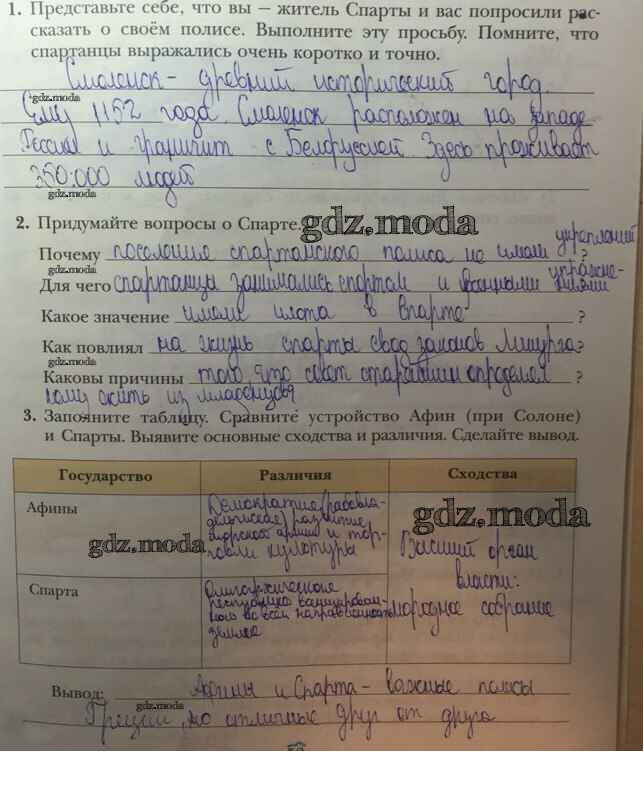 1. Представьте себе, что вы — житель Спарты и вас попросили рас-
сказать о своём полисе. Выполните эту просьбу. Помните, что
спартанцы выражались очень коротко и точно.
Смоленск - древний исторический город.
gdz.moda
Ему 1152 года. Смоленск расположен на западе
России и граничит с Белоруссией. Здесь проживает
350.000 людей
gdz.moda
2. Придумайте вопросы о Спарте.
gdz.moda
Почему поселения спартанского полиса не имели укреплений ?
gdz.moda
Для чего спартанцы занимались спортом и военными упражне-
ниями
Какое значение имели илоты в Спарте ?
Как повлиял на жизнь спарты свод законов Ликурга?
gdz.moda
Каковы причины того, что совет старейшин определял ?
кому жить из младенцев
3. Заполните таблицу. Сравните устройство Афин (при Солоне)
и Спарты. Выявите основные сходства и различия. Сделайте вывод.
Государство Различия Сходства
Афины
Демократия (рабовла-
дельческая) развитие
морской армии и тор-
говли культуры
gdz.moda
gdz.moda
Высший орган
власти:
народное собрание
Спарта
Олигархическая
республика
земле
Вывод: Афины и Спарта - важные полисы
gdz.moda
Греции, но отличные друг от друга